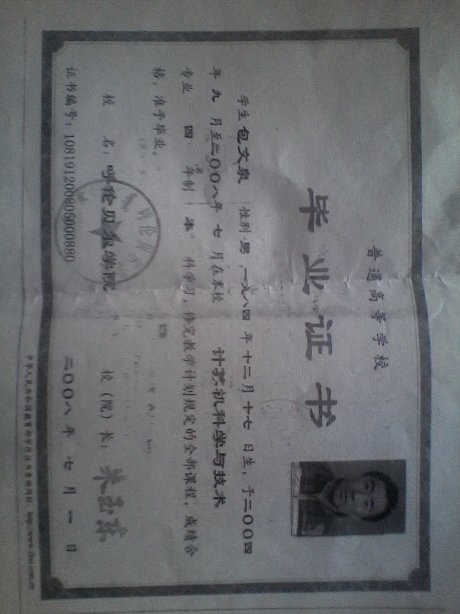 普通高等学校
毕业证书
学生 包文泉 性别 男 一九八四 年 十二月 十七 日生，于二00四
年 九 月至二00八年 七 月在本校 计算机科学与技术
专业 四 年制 本 科学习，修完教学计划规定的全部课程，成绩合
格，准予毕业。
校 名：呼伦贝尔学院 校（院）长：
证书编号：108191200805000880 二00八 年 七 月 一 日